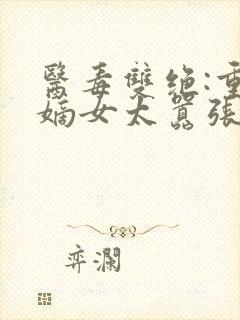 醫毒雙绝:重
嫡女太囂張
弈瀾